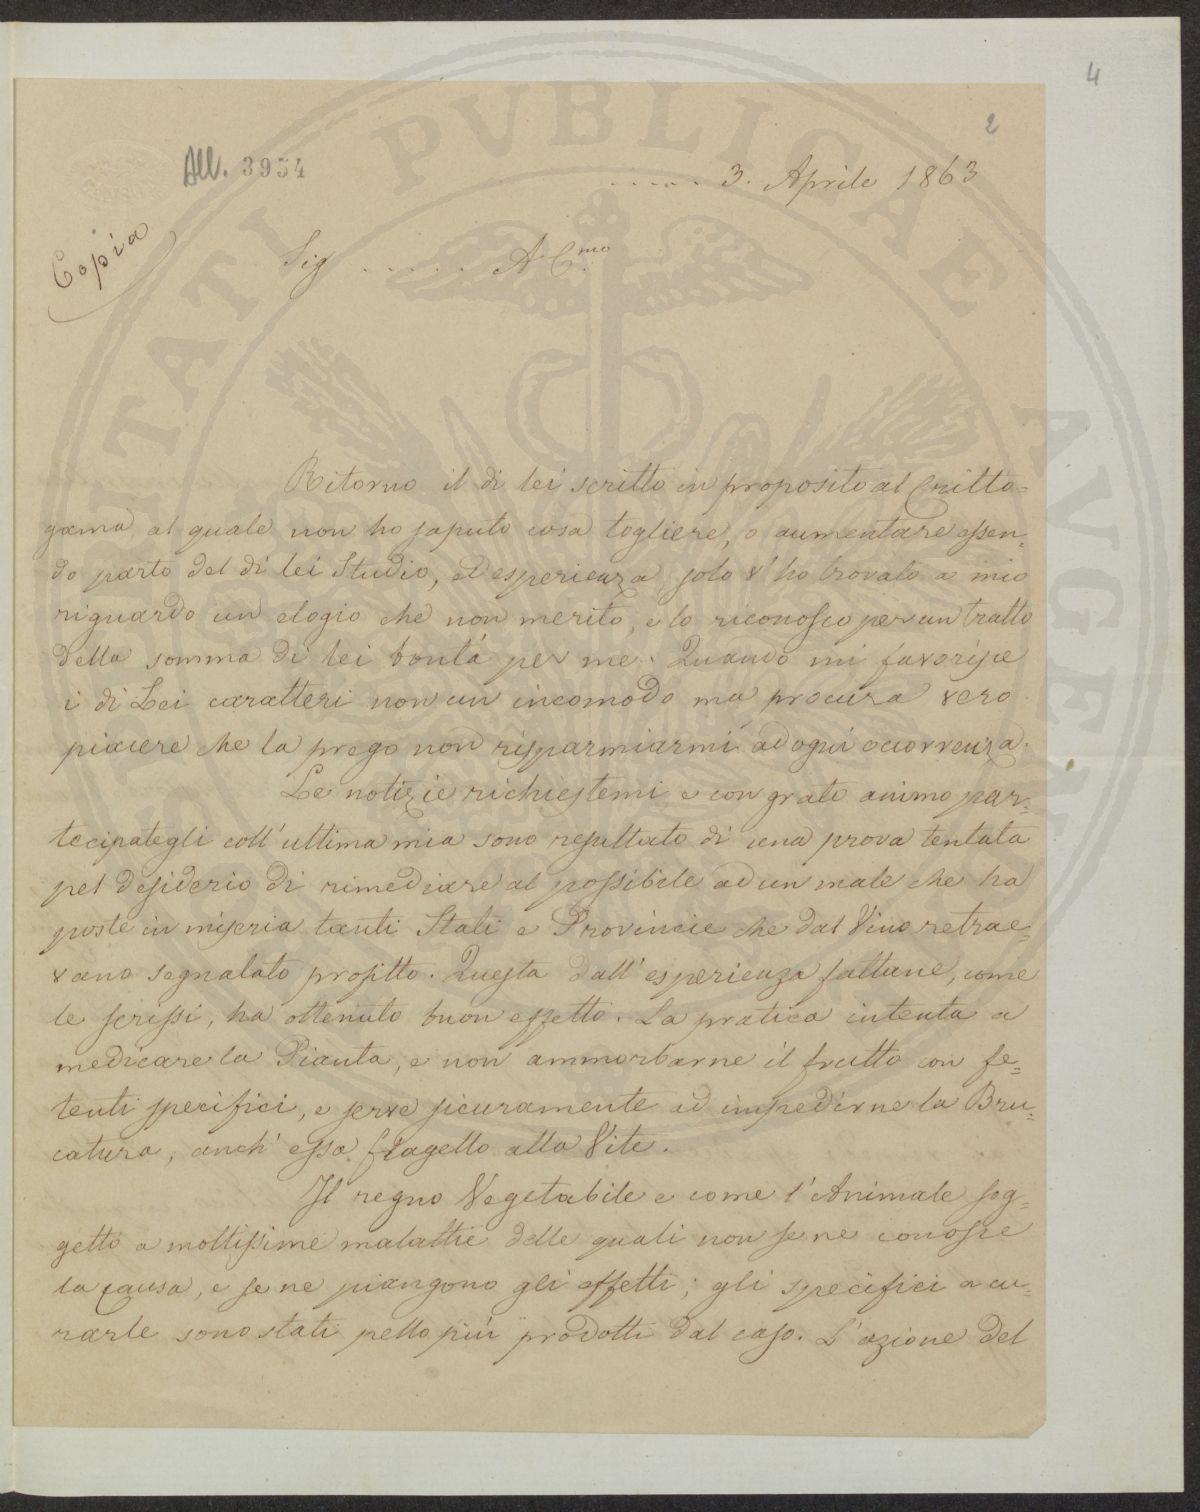 4
2
All. 3954
..... 3. Aprile 1863
Copia
Sig ...... A. C.mo
Ritorno il di lei scritto in proposito al Critto=
gama, al quale non ho saputo cosa togliere, o aumentare essen=
do parto del di lei Studio, ed esperienza, solo v'ho trovato a mio
riguardo un elogio che non merito, e lo riconosco per un tratto
della somma di lei bontà per me. Quando mi favorisce
i di Lei caratteri non un incomodo ma procura vero
piacere che la prego non risparmiarmi ad ogni occorrenza.
Le notizie richiestemi e con grato animo par=
tecipategli coll'ultima mia sono resultato di una prova tentata
pel desiderio di rimediare al possibile ad un male che ha
poste in miseria tanti Stati e Provincie che dal Vino retrae=
vano segnalato profitto. Questa dall'esperienza fattane, come
le scrissi, ha ottenuto buon effetto. La pratica intenta a
medicare la Pianta, e non ammorbarne il frutto con fe=
tenti specifici, e serve sicuramente ad impedirne la Bru=
catura, anch'essa flagello alla Vite.
Il regno Vegetabile e come l'Animale sog=
getto a moltissime malattie delle quali non se ne conosce
la causa, e se ne piangono gli effetti; gli specifici a cu=
rarle sono stati pello più prodotti dal caso. L'azione del
PVBLICAE
AVGEN